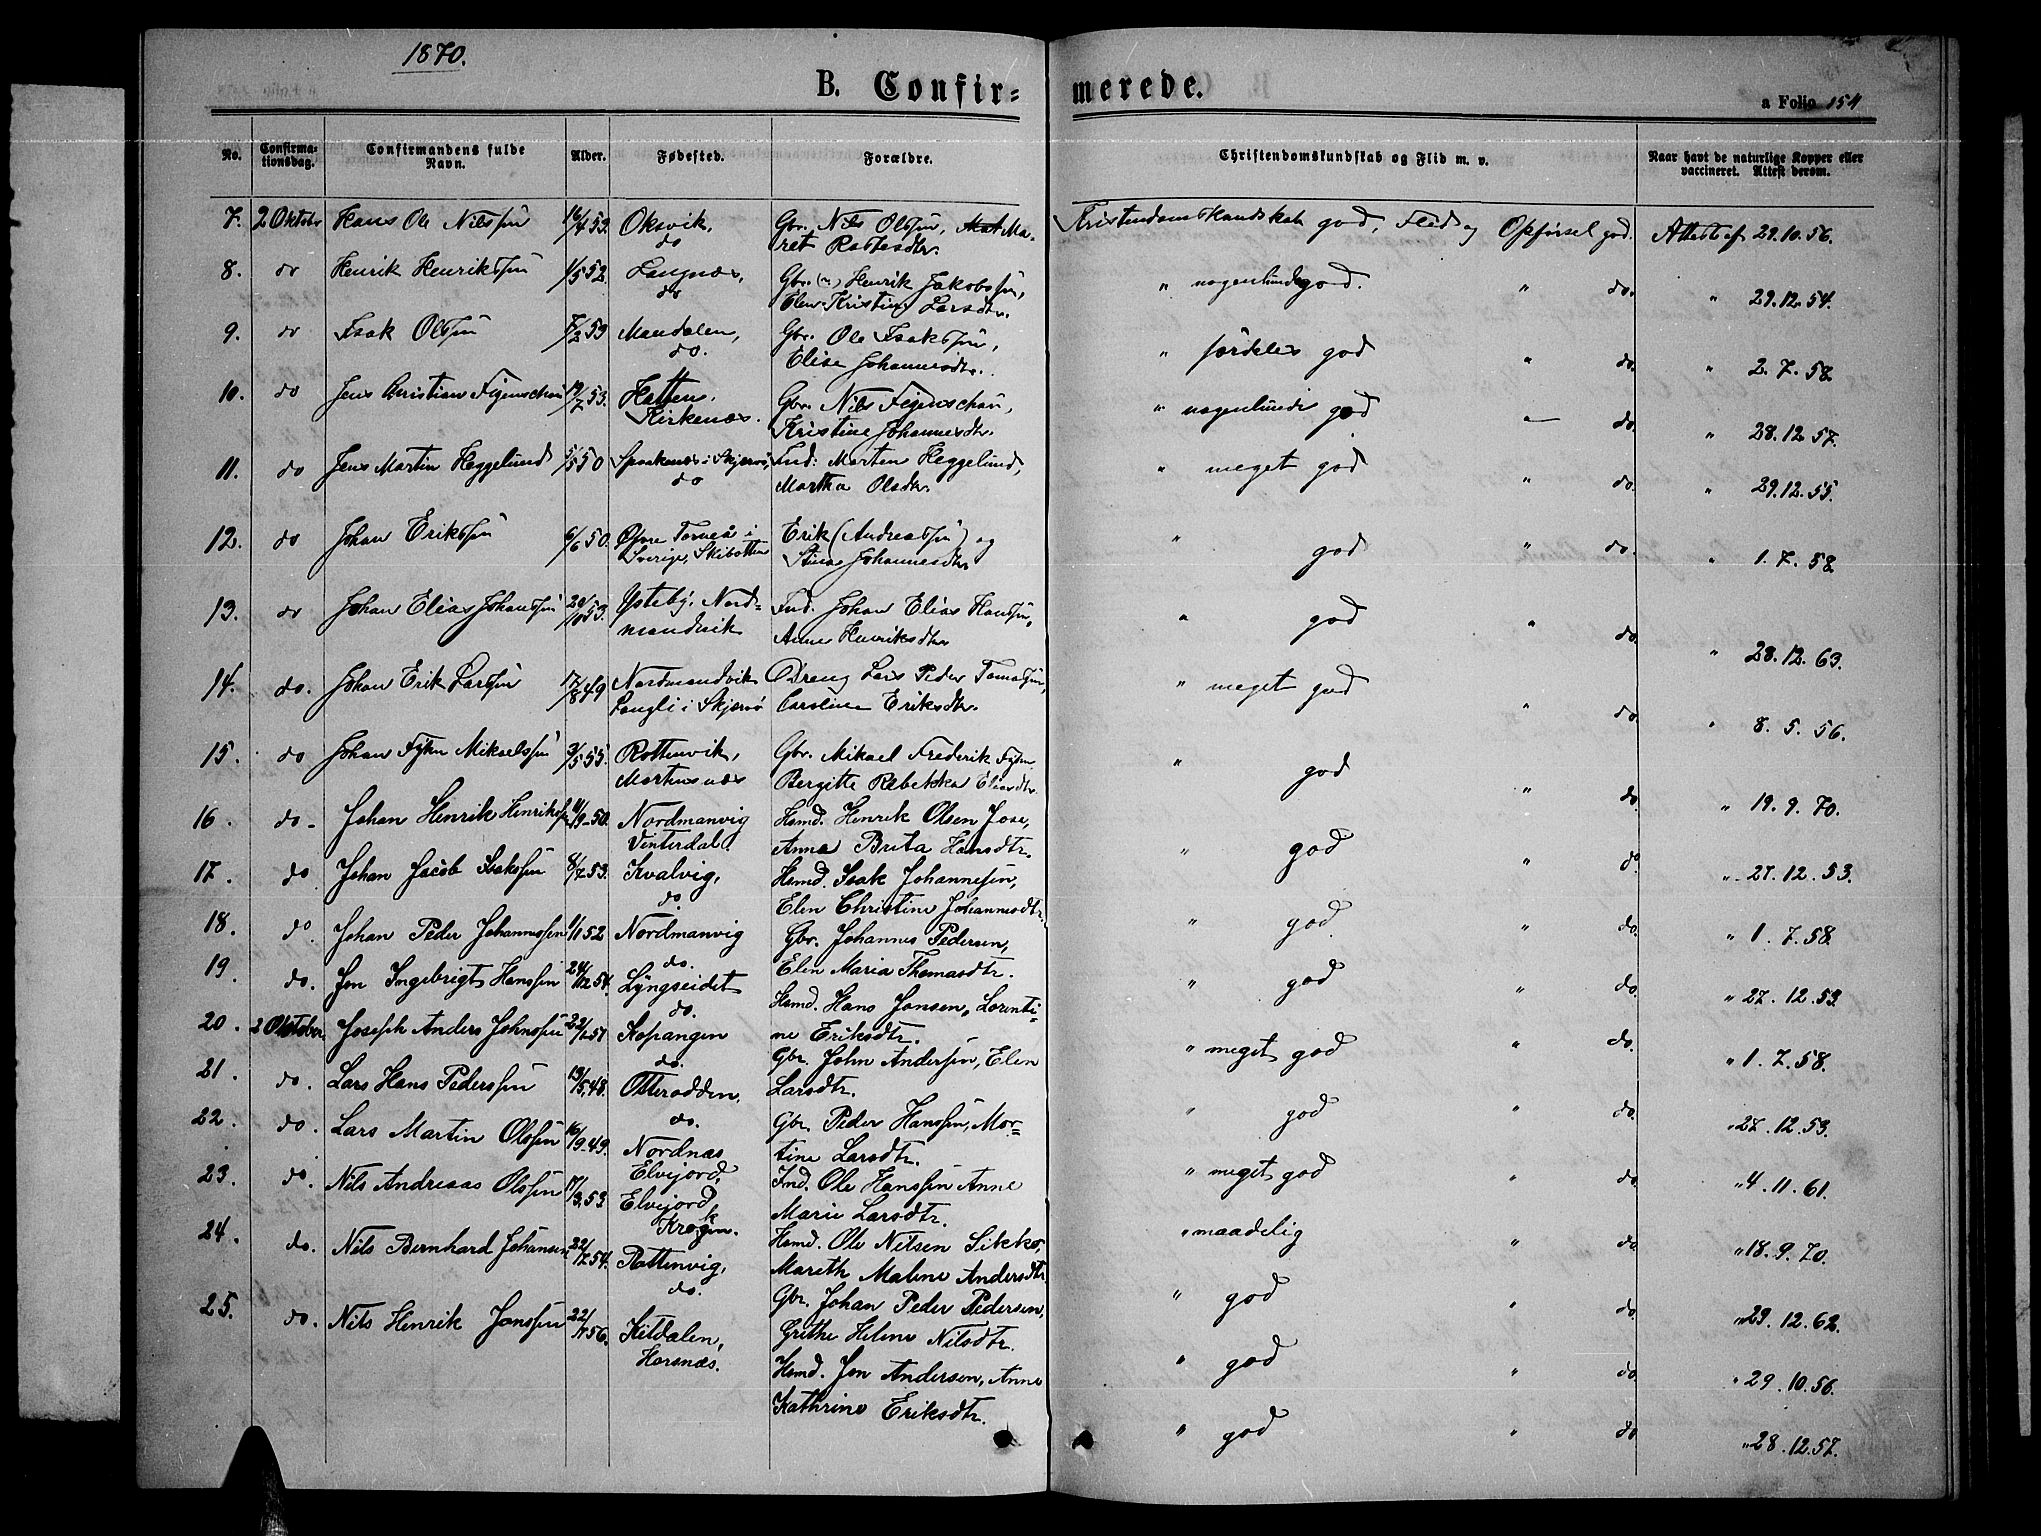 1870.
B. Confir=
merede.
a Folio 154
No.
Confirma-
tionsdag.
Confirmandens fulde
Navn.
Alder.
Fødested.
Forældre.
Christendomskundskab og Flid m. v.
Naar havt de naturlige Kopper eller
vaccineret. Attest derom.
7. 2 Oktobr Hans Ole Nilssøn 16/4 53. Oksvik, Gbr. Nils Olssøn, Ma-
do ret Rasmusdtr.
Kristendomskundskab god, Flid og Opførsel god. Attest af 29.10.56.
8. do Henrik Henrikssøn 1/5 52. Langnæs, Gbr. Henrik Jakobssøn,
do Elen Kristine Larsdtr.
" nogenlunde god. " do. " 29.12.54.
9. do Isak Olssøn 7/2 53 Mandalen, Gbr. Ole Isakssøn,
do. Elise Johannesdtr.
" særdeles god " do. " 2.7.58.
10. do Jens Christian Figenschou 19/7 53. Hatten, Gbr. Nils Figenschou,
Kirkenæs. Kristine Johannesdtr.
" nogenlunde god — do. " 28.12.57.
11. do Jens Martin Heggelund 5/5 50 Spaakenæs i Skjervø, Ind: Morten Heggelund,
do Martha Olsdtr.
" meget god " do. " 29.12.55.
12. do Johan Erikssøn 6/6 50. Øvre Torneå i Erik (Andreassøn) og
Sverige, Skibotten Stina Johannesdtr
" god " do. " 1.7.58.
13. do Johan Elias Johanssøn 20/10 53. Ysteby, Nord= Ind. Johan Elias Hanssøn,
mandvik Anne Henriksdtr
" god " do. " 28.12.63.
14. do. Johan Erik Larssøn 17/8 49 Nordmandvik Dreng Lars Peder Tomassøn,
Langli i Skjervø Caroline Eriksdtr.
" meget god " do. " 8.5.56.
15. do Johan Fyhn Mikaelssøn 3/5 55. Rottenvik, Gbr. Mikael Frederik Fyhn
Martensnæs Bergitte Rebekka Eliasdtr.
" god " do. " 19.9.70.
16. do. Johan Henrik Henrikssøn 11/9 50. Nordmanvig Hsmd. Henrik Olsen Jose,
Vinterdal. Anna Brita Hansdtr.
" god " do. " 27.12.53.
17. do Johan Jacob Isakssøn 8/7 53. Kvalvig, Hsmd. Isak Johannesen,
do. Elen Christine Johannesdtr.
" god " do. " 1.7.58.
18. do Johan Peder Johannessen 1/1 52 Nordmanvig Gbr. Johannes Pedersen,
do. Elen Maria Thomasdtr.
" god " do. " 27.12.53.
19. do. Jon Ingebrigt Hanssen 24/12 54. Lyngseidet Hsmd. Hans Jonsen, Lorenti=
do. ne Eriksdtr.
" meget god " do. " 1.7.58.
20. 2 Oktober Joseph Anders Johnssøn Kopangen Gbr. John Andersen, Elen
do. Larsdtr.
" god " do. " 27.12.53.
21. do. Lars Hans Pederssen 19/5 48. Otterodden, Gbr. Peder Hanssen, Mor=
do. tine Larsdtr.
" meget god " do. " 4.11.61.
22. do. Lars Martin Olssen 16/9 49. Nordnæs Ind. Ole Hanssen Anne
Elvejord, Marie Larsdtr.
" maadelig " do. " 18.9.70.
23. do. Nils Andreas Olssen 17/3 53 Elvejord Hsmd. Ole Nilsen Sikko,
Kroken. Mareth Malene Andersdtr.
" god " do. " 29.12.62.
24. do. Nils Bernhard Johansen 22/7 54. Rottenvig, Gbr. Johan Peder Pedersen,
do. Grethe Helene Nilsdtr.
" god " do. " 29.10.56.
25. do. Nils Henrik Jonssen 22/1 56. Kitdalen, Hsmd. Jon Andersen, Anne
Horsnæs. Kathrine Eriksdtr.
" god " do. " 28.12.57.